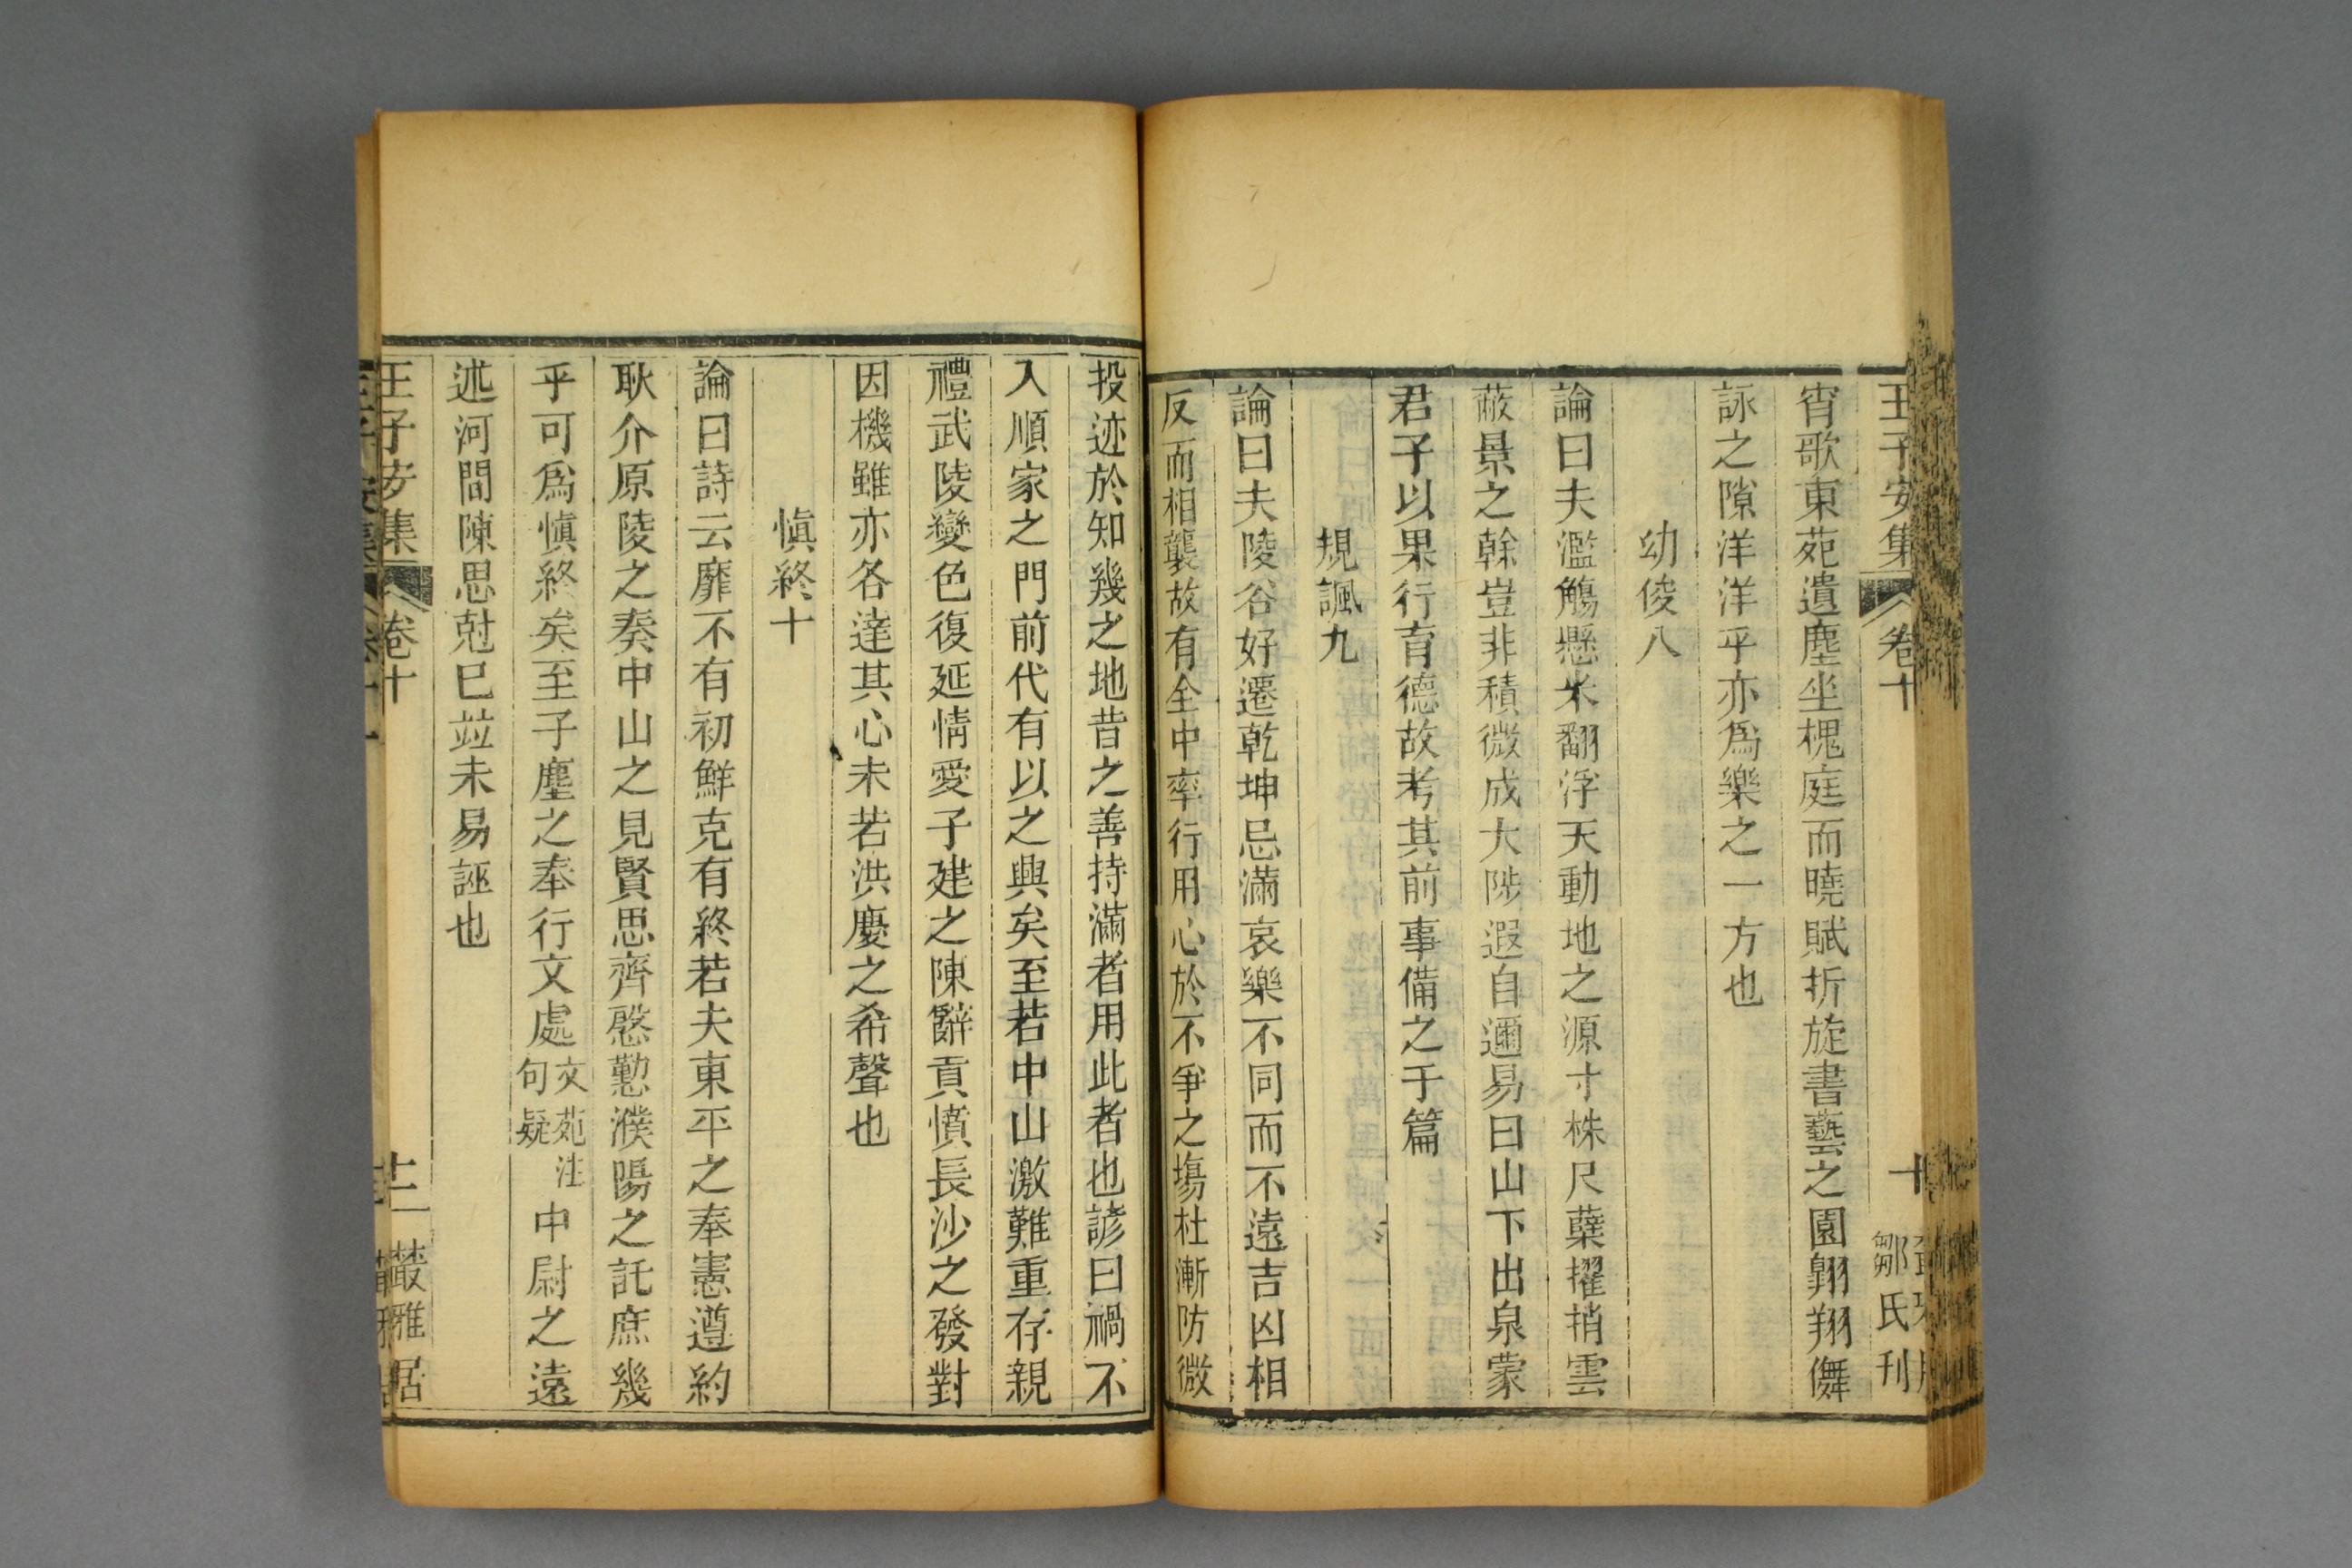 王子安集 卷十 十 鄒氏刊
宵歌東苑遺塵坐槐庭而曉賦折旋書藝之園翱翔儛
詠之隙洋洋乎亦爲樂之一方也
幼俊八
論曰夫濫觴懸米翻浮天動地之源寸株尺蘖擢捎雲
蔽景之榦豈非積微成大陟遐自邇易曰山下出泉蒙
君子以果行育德故考其前事備之于篇
規諷九
論曰夫陵谷好遷乾坤忌滿哀樂不同而不遠吉凶相
反而相襲故有全中率行用心於不爭之塲杜漸防微
投迹於知幾之地昔之善持滿者用此者也諺曰禍不
入順家之門前代有以之興矣至若中山激難重存親
禮武陵變色復延情愛子建之陳辭貢憤長沙之發對
因機雖亦各達其心未若洪慶之希聲也
愼終十
論曰詩云靡不有初鮮克有終若夫東平之奉憲遵約
耿介原陵之奏中山之見賢思齊慇懃濮陽之託庶幾
乎可爲愼終矣至子塵之奉行文處文苑注句疑中尉之遠
述河間陳思尅巳並未易誣也
王子安集 卷十 十一 叢雅居